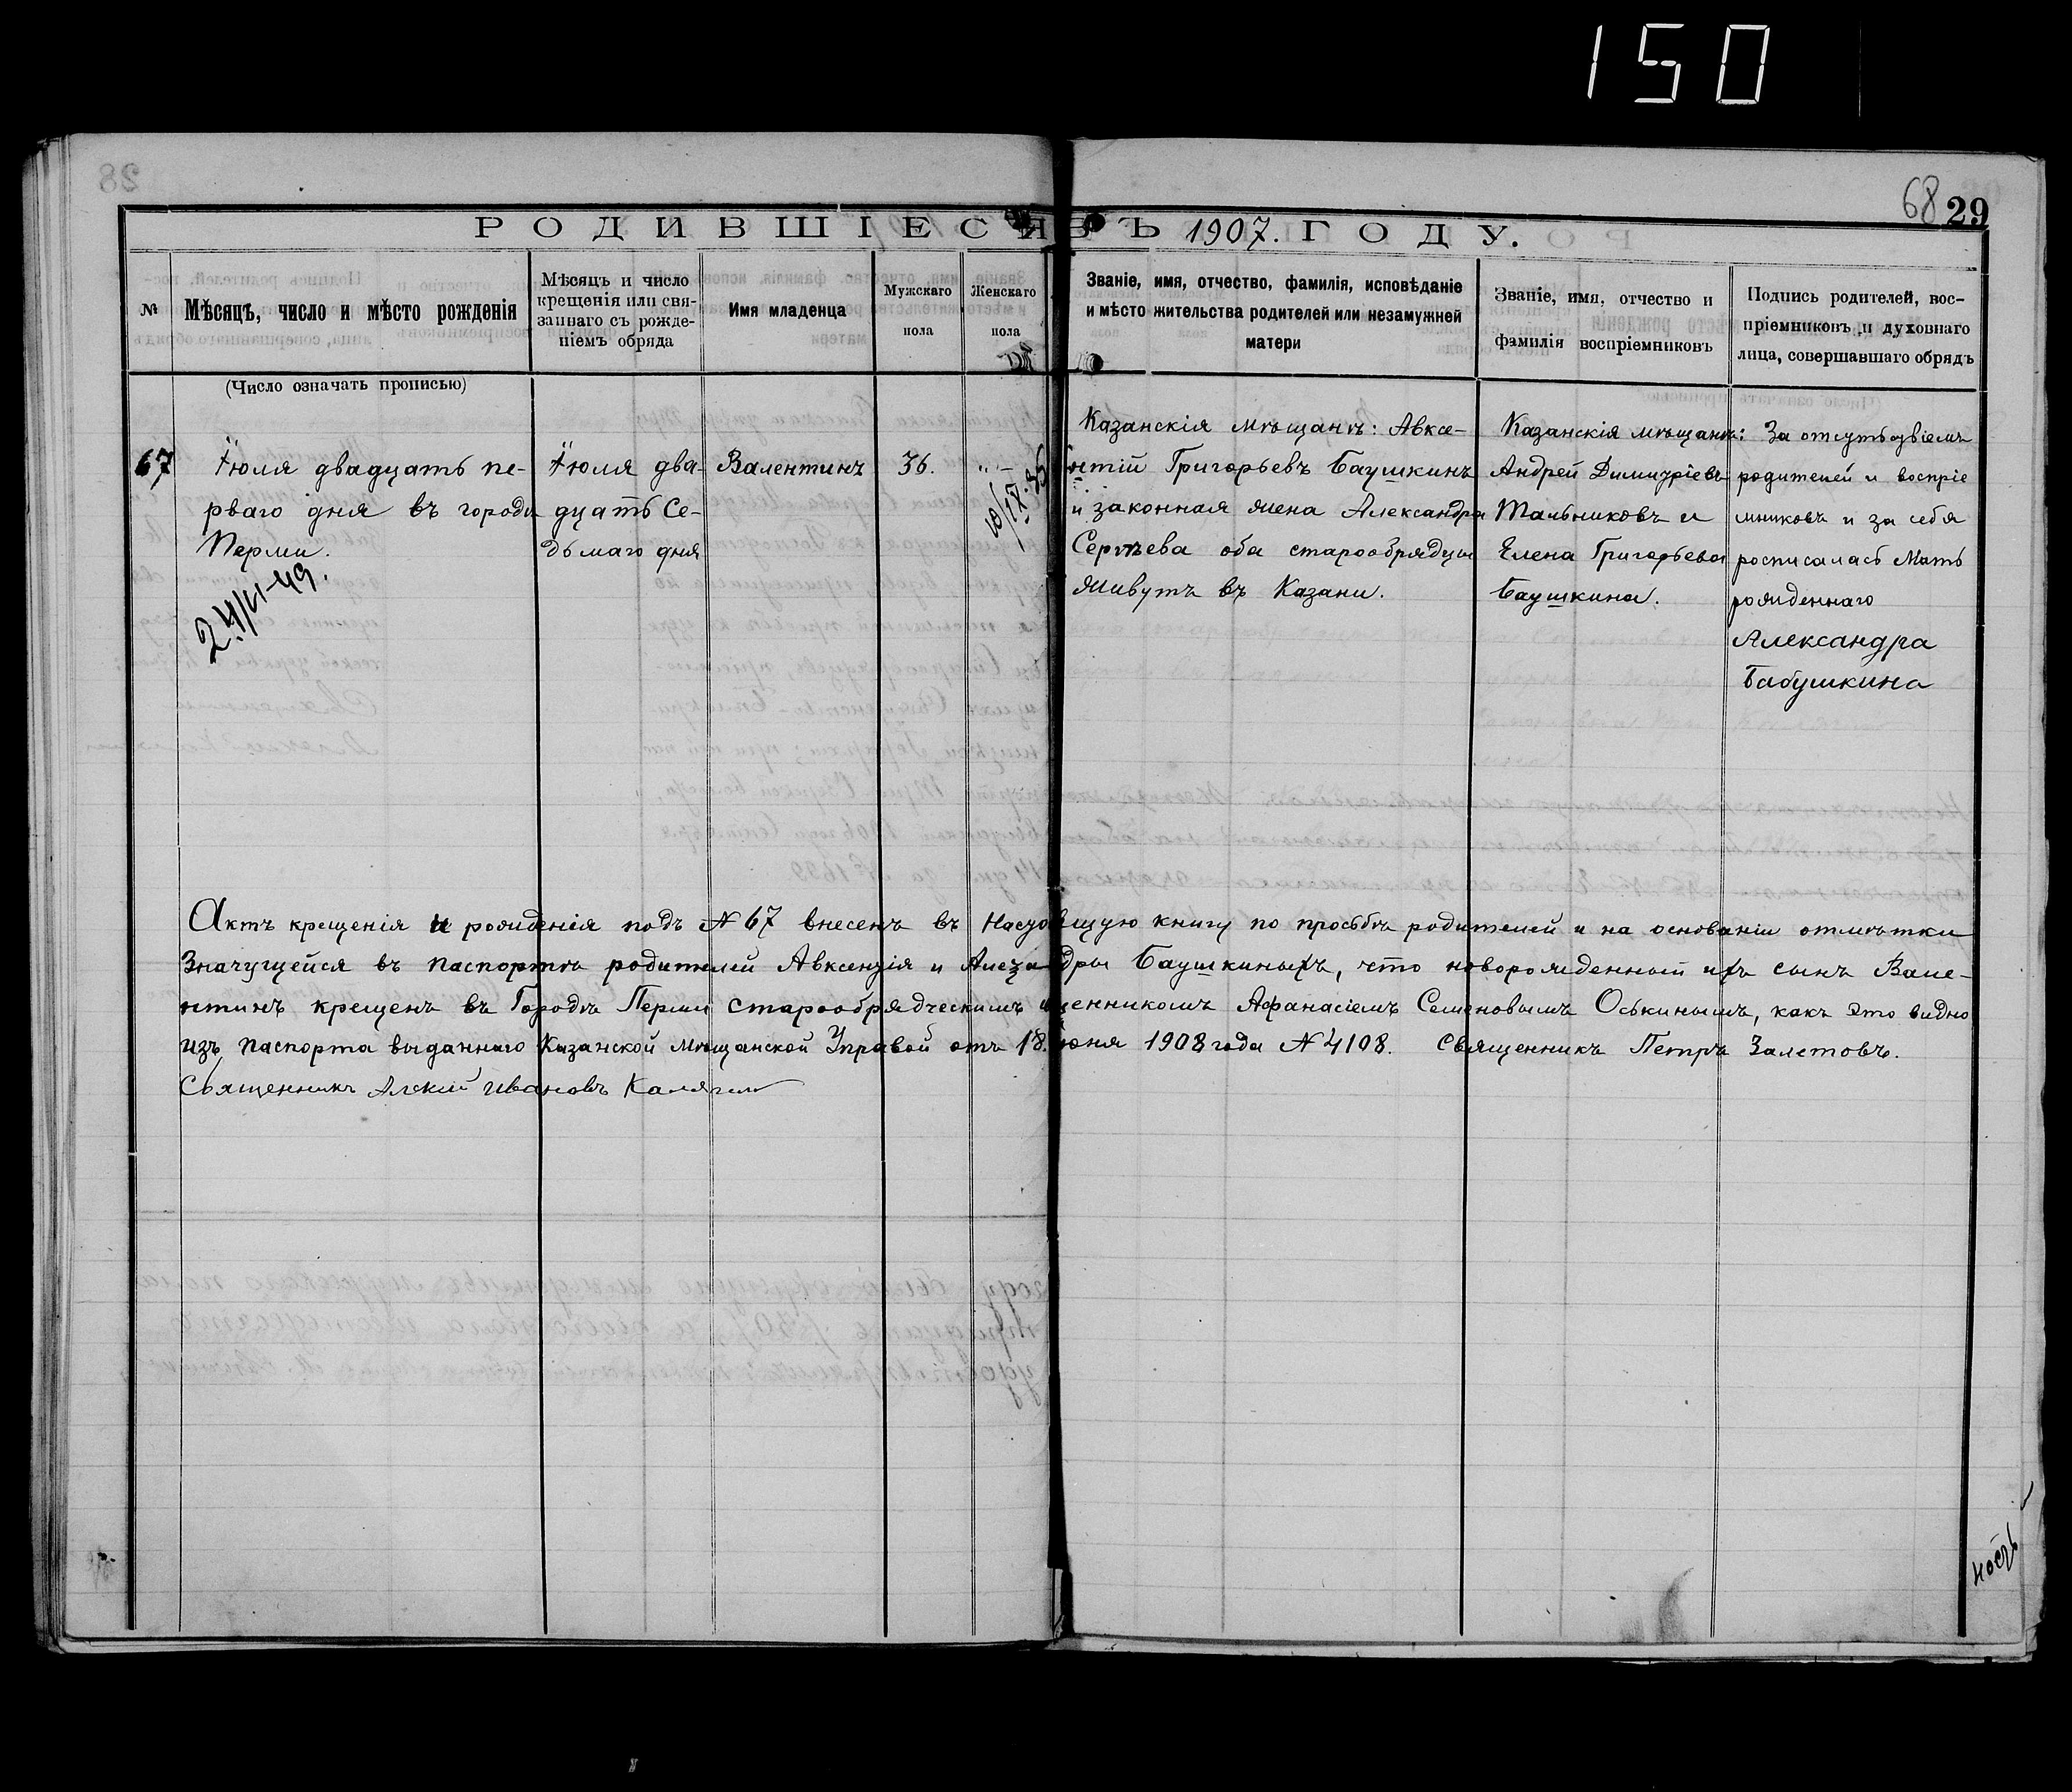 150
28
68 29
РОДИВШІЕСЯ ВЪ 1907. ГОДУ.
№
Мѣсяцъ, число и мѣсто рожденія
Мѣсяцъ и число
крещенія или свя-
заннаго съ рожде-
ніемъ обряда
Имя младенца
Мужскаго
пола
Женскаго
пола
Званіе, имя, отчество, фамилія, исповѣданіе
и мѣсто жительства родителей или незамужней
матери
Званіе, имя, отчество и
фамилія воспріемниковъ
Подпись родителей, вос-
пріемниковъ и духовнаго
лица, совершавшаго обрядъ
(Число означать прописью)
67
Іюля двадцать пе-
рваго дня въ городи
Перми.
24/VI-49.
Іюля два-
дцать Се-
дьмаго дня
Валентинъ
36.
" –
10/IX.35
Казанскія мѣщанѣ: Авксе-
нтій Григорьевъ Баушкинъ
и законная жена Александра
Сергѣева оба старообрядцы
Живутъ въ Казани.
Казанскія мѣщанѣ:
Андрей Димитріевъ
Тальниковъ и
Елена Григорьева
Баушкина.
За отсутьствіемъ
родителей и воспріе
мниковъ и за себя
росписалась Мать
рожденнаго
Александра
Бабушкина
Актъ крещенія и рожденія подъ № 67 внесенъ въ настоящую книгу по просьбѣ родителей и на основаніи отмѣтки
Значущейся въ паспортѣ родителей Авксентія и Александры Баушкиныхъ, что новорожденный ихъ сынъ Вале-
нтинъ крещенъ въ Городѣ Перми старообрядческимъ щенникомъ Афанасіемъ Семеновымъ Оськинымъ, какъ это видно
изъ паспорта выданнаго Казанской Мѣщанской Управой отъ 18. юня 1908 года № 4108. Священникъ Петръ Залетовъ.
Священникъ Алекій Ивановъ Калягин
ность